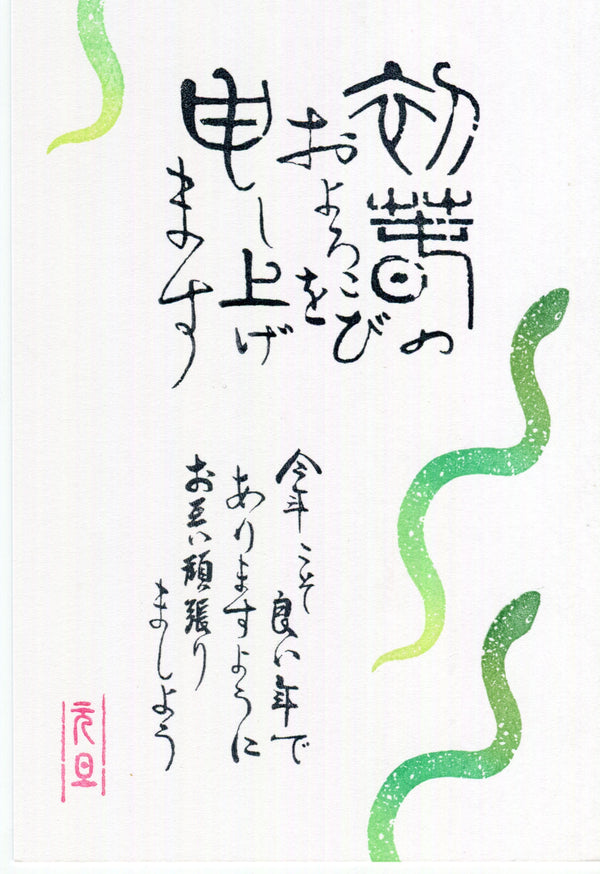 初春の
およろこびを
申し上げ
ます
今年こそ 良い年で
ありますように
お互い頑張り
ましょう
元旦